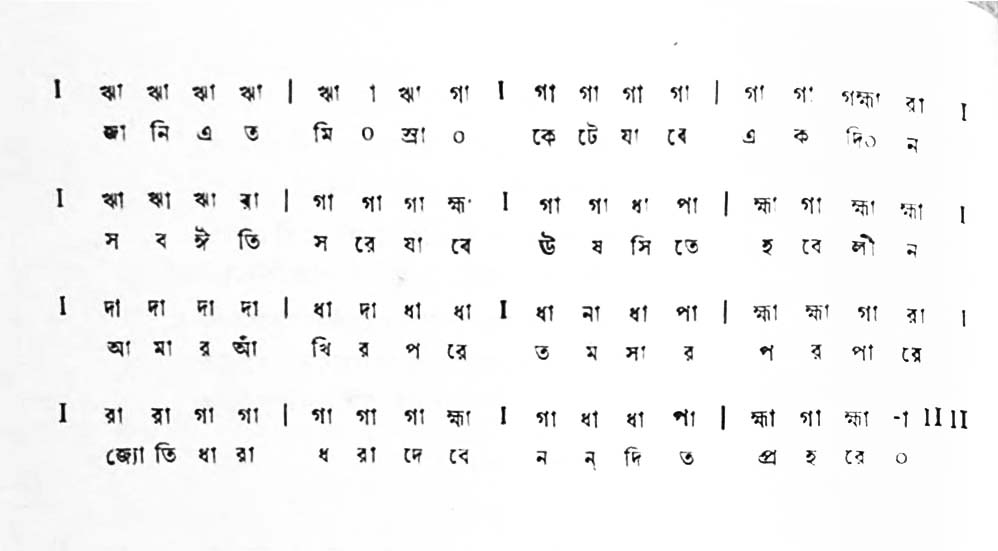 I ঋা ঋা ঋা ঋা | ঋা া ঋা গা I গা গা গা গা | গা গা গহ্মা রা I
জা নি এ ত মি ০ স্রা ০ কে টে যা বে এ ক দি০ ন
I ঋা ঋা ঋা রা | গা গা গা হ্মা I গা গা ধা পা | হ্মা গা হ্মা হ্মা I
স ব ঈ তি স রে যা বে ঊ ষ সি তে হ বে লী ন
I দা দা দা দা | ধা দা ধা ধা I ধা না ধা পা | হ্মা হ্মা গা রা I
আ মা র আঁ খি র প রে ত ম সা র প র পা রে
I রা রা গা গা | গা গা গা হ্মা I গা ধা ধা পা | হ্মা গা হ্মা -া II II
জ্যো তি ধা রা ধ রা দে বে ন ন্ দি ত প্র হ রে ০